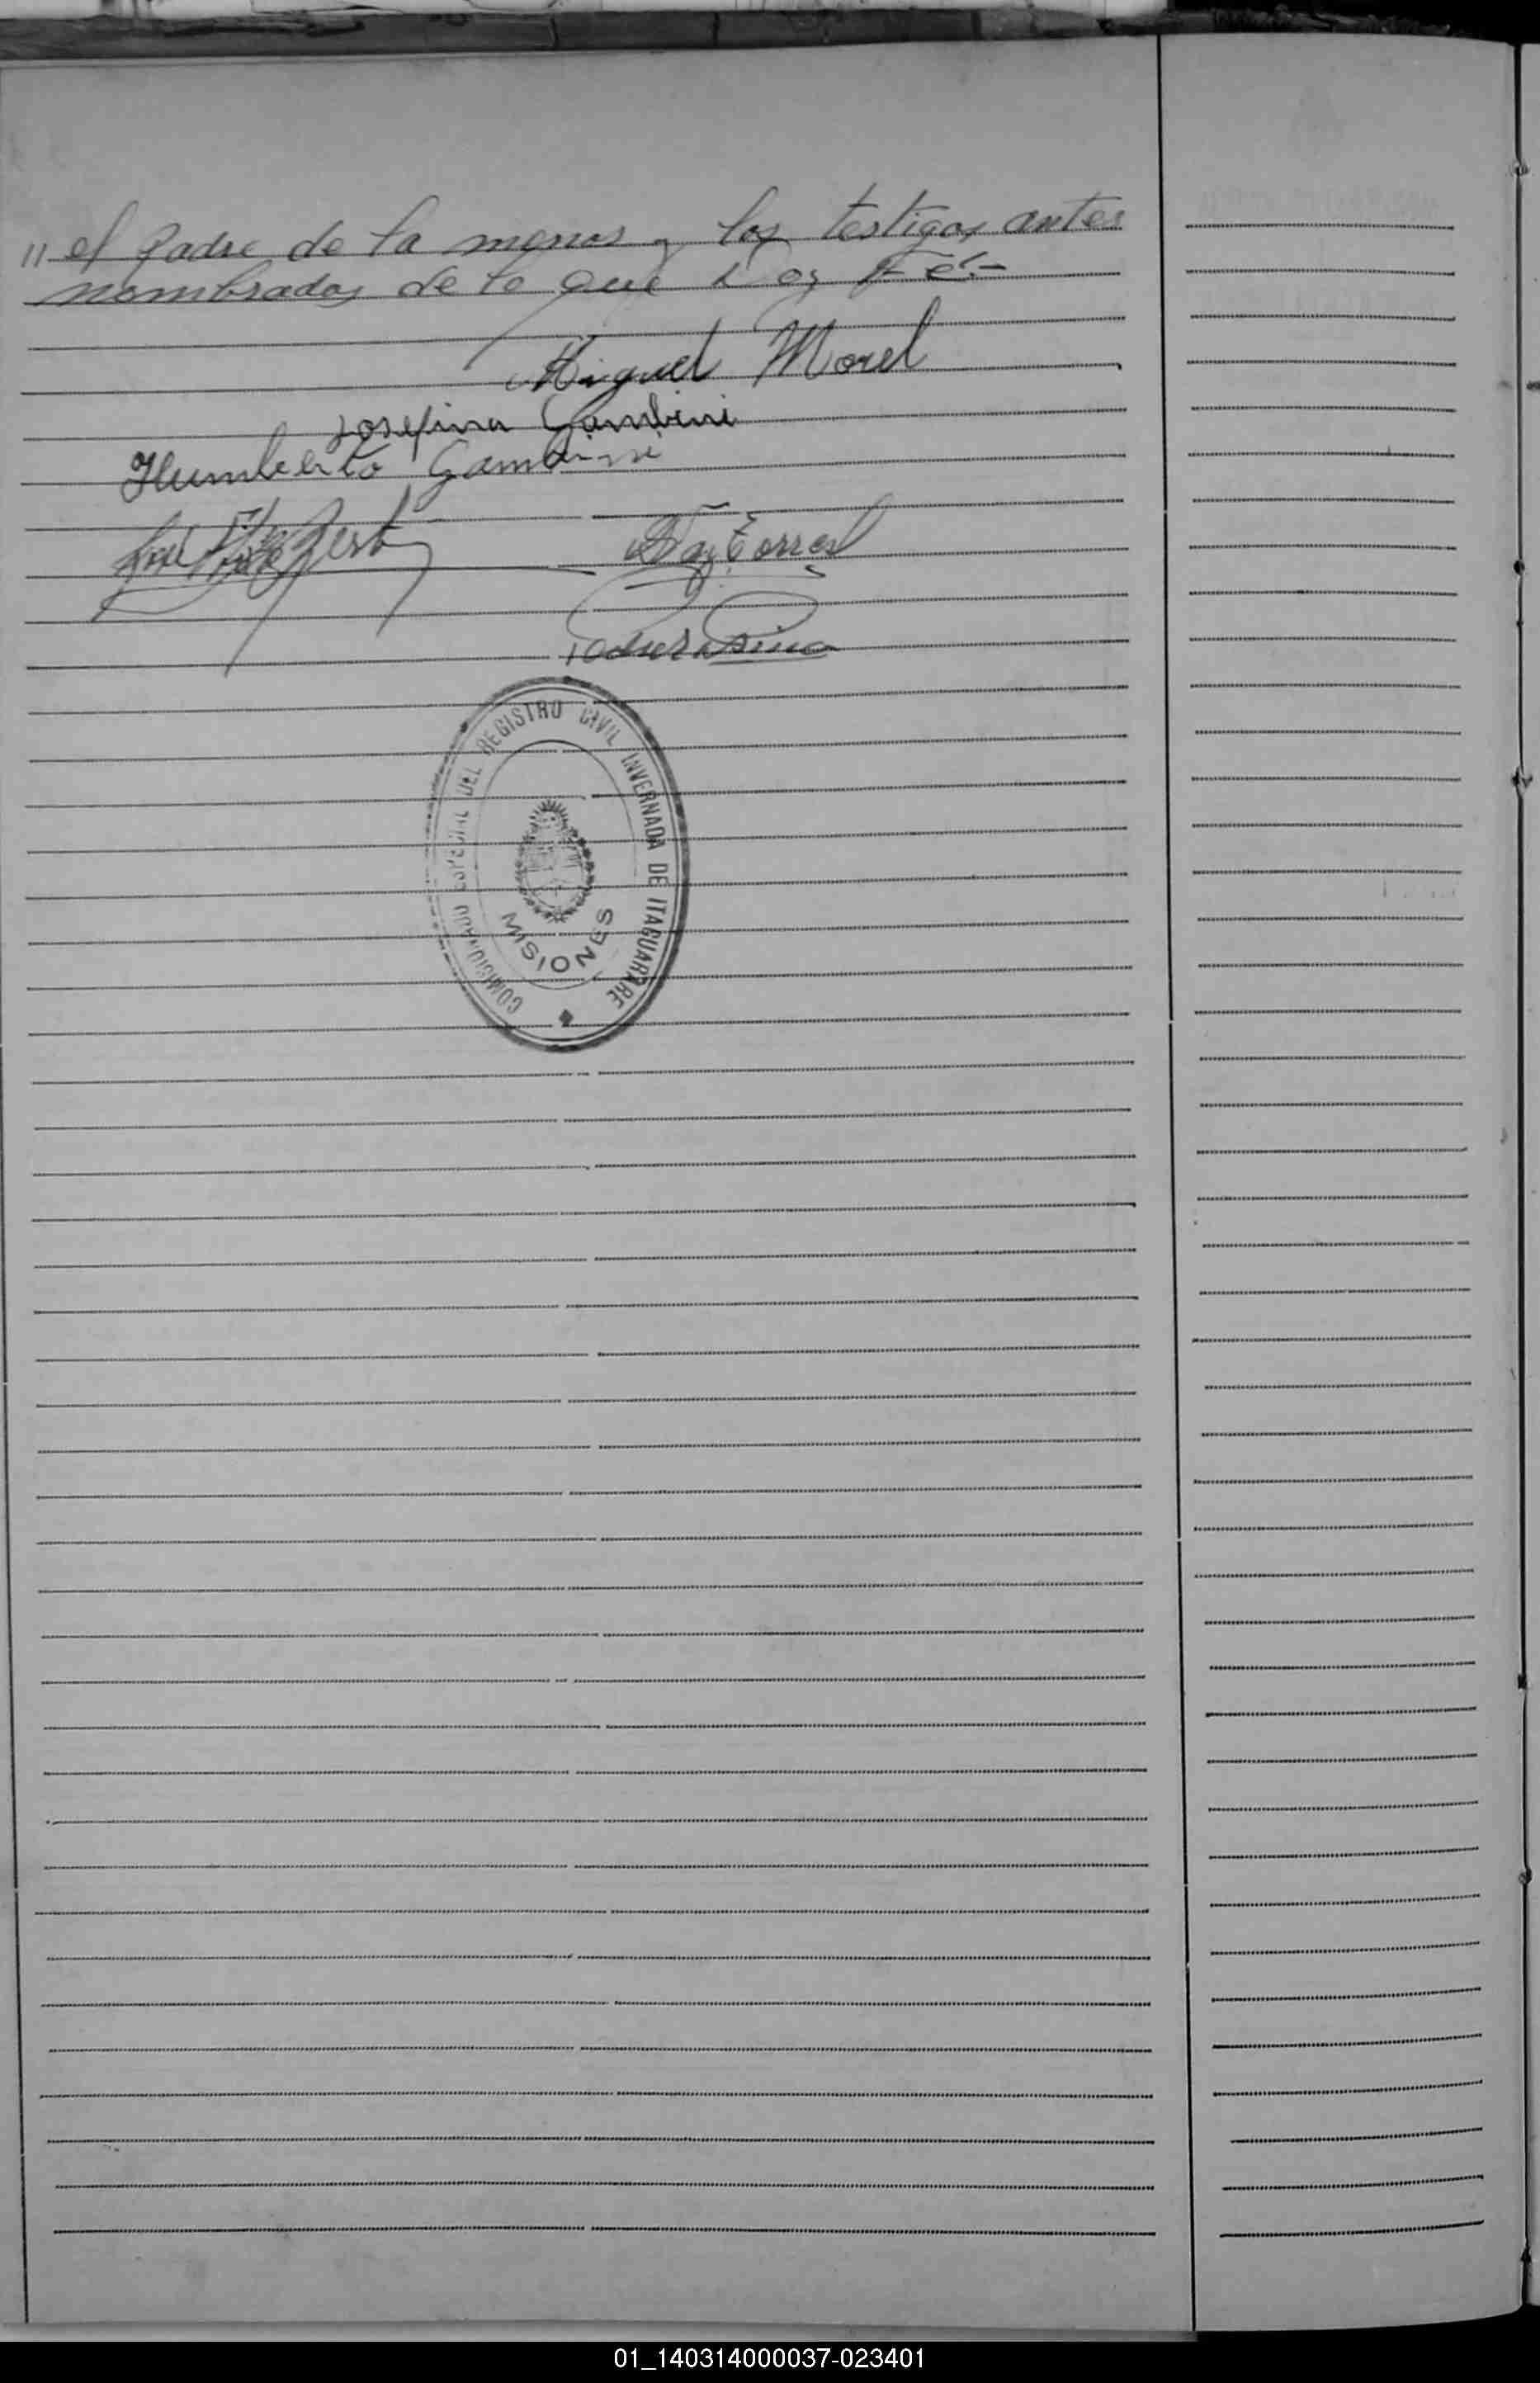 " el padre de la menor y los testigos antes
nombrados de lo que Doy Fé.-
Miguel Morel
Josefina Gambini
Humberto Gambini
José
Torres
COMISIONADO ESPECIAL DEL REGISTRO CIVIL INVERNADA DE ITACUARARE
MISIONES
01_140314000037-023401